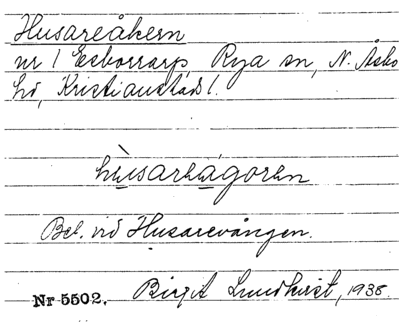 Husareåkern
nr 1 Esborrarp, Rya sn, N. Åsbo
hd, Kristianstads l.
husarəagorən
Bel. vid Husarevången.
Nr 5502. Birgit Lundkvist, 1935.